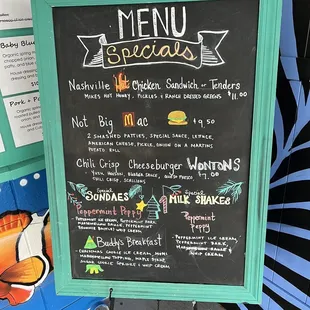 Baby Blue
$10
Pork + Pa
MENU
Specials
Nashville Hot Chicken Sandwich or Tenders
Mikes Hot Honey, Pickles & Ranch Dressed Greens $11.00
Not Big Mac $9.00
2 Smashed Patties, Special Sauce, Lettuce,
American Cheese, Pickle, Onion on a Martins
Potato Roll
Chili Crisp Cheeseburger Wontons
$7.00
Chili Crisp, Scallions
Special Sundaes
Special Milk Shakes
Peppermint Peppy
Peppermint Ice Cream, Peppermint Bark,
Peppermint
Peppy
Peppermint Ice Cream
Peppermint Bark,
Whip Cream
Buddy's Breakfast
Christmas Cookie Ice Cream, Mini
Marshmallow Topping, Maple Syrup,
Sugar Cookie, Sprinkles & Whip Cream